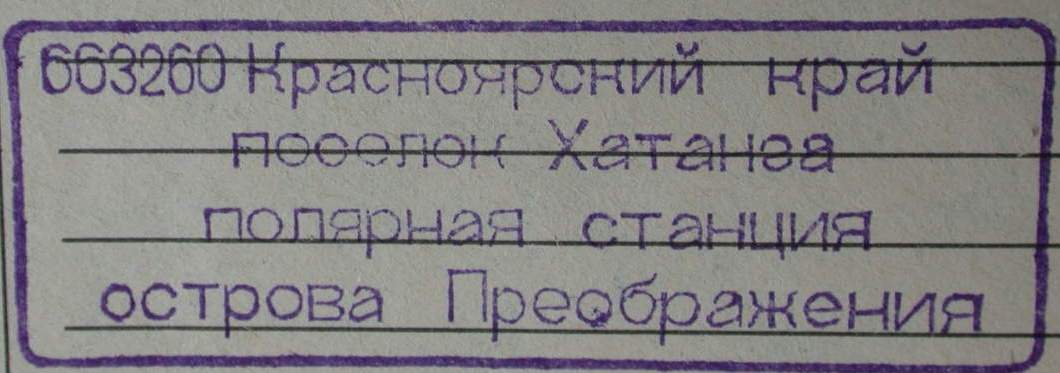 663260 Красноярский край
поселок Хатанга
полярная станция
острова Преображения